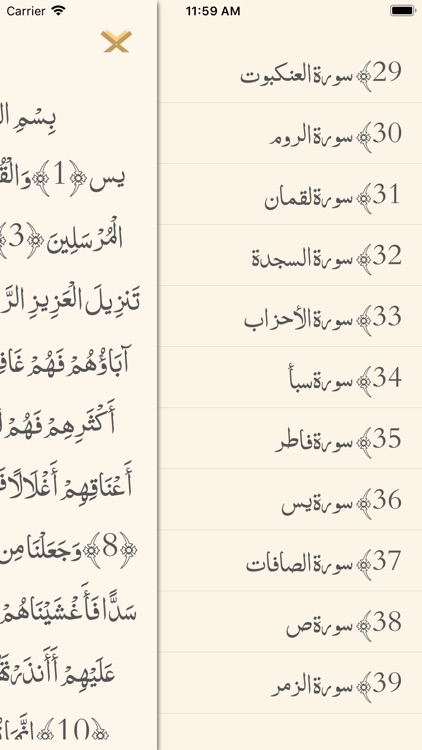 Carrier 11:59 AM
29﴿سورة العنكبوت
30﴿سورة الروم
31﴿سورة لقمان
32﴿سورة السجدة
33﴿سورة الأحزاب
34﴿سورة سبأ
35﴿سورة فاطر
36﴿سورة يس
37﴿سورة الصافات
38﴿سورة ص
39﴿سورة الزمر
بِسْمِ
يس ﴿1﴾ وَالْقُ
الْمُرْسَلِينَ ﴿3﴾
تَنزِيلَ الْعَزِيزِ الرَّ
آبَاؤُهُمْ فَهُمْ غَافِ
أَكْثَرِهِمْ فَهُمْ
أَعْنَاقِهِمْ أَغْلَالًا فَ
﴿8﴾ وَجَعَلْنَا مِن
سَدًّا فَأَغْشَيْنَاهُمْ
عَلَيْهِمْ أَأَنذَرْتَهُ
﴿10﴾ إِنَّمَا